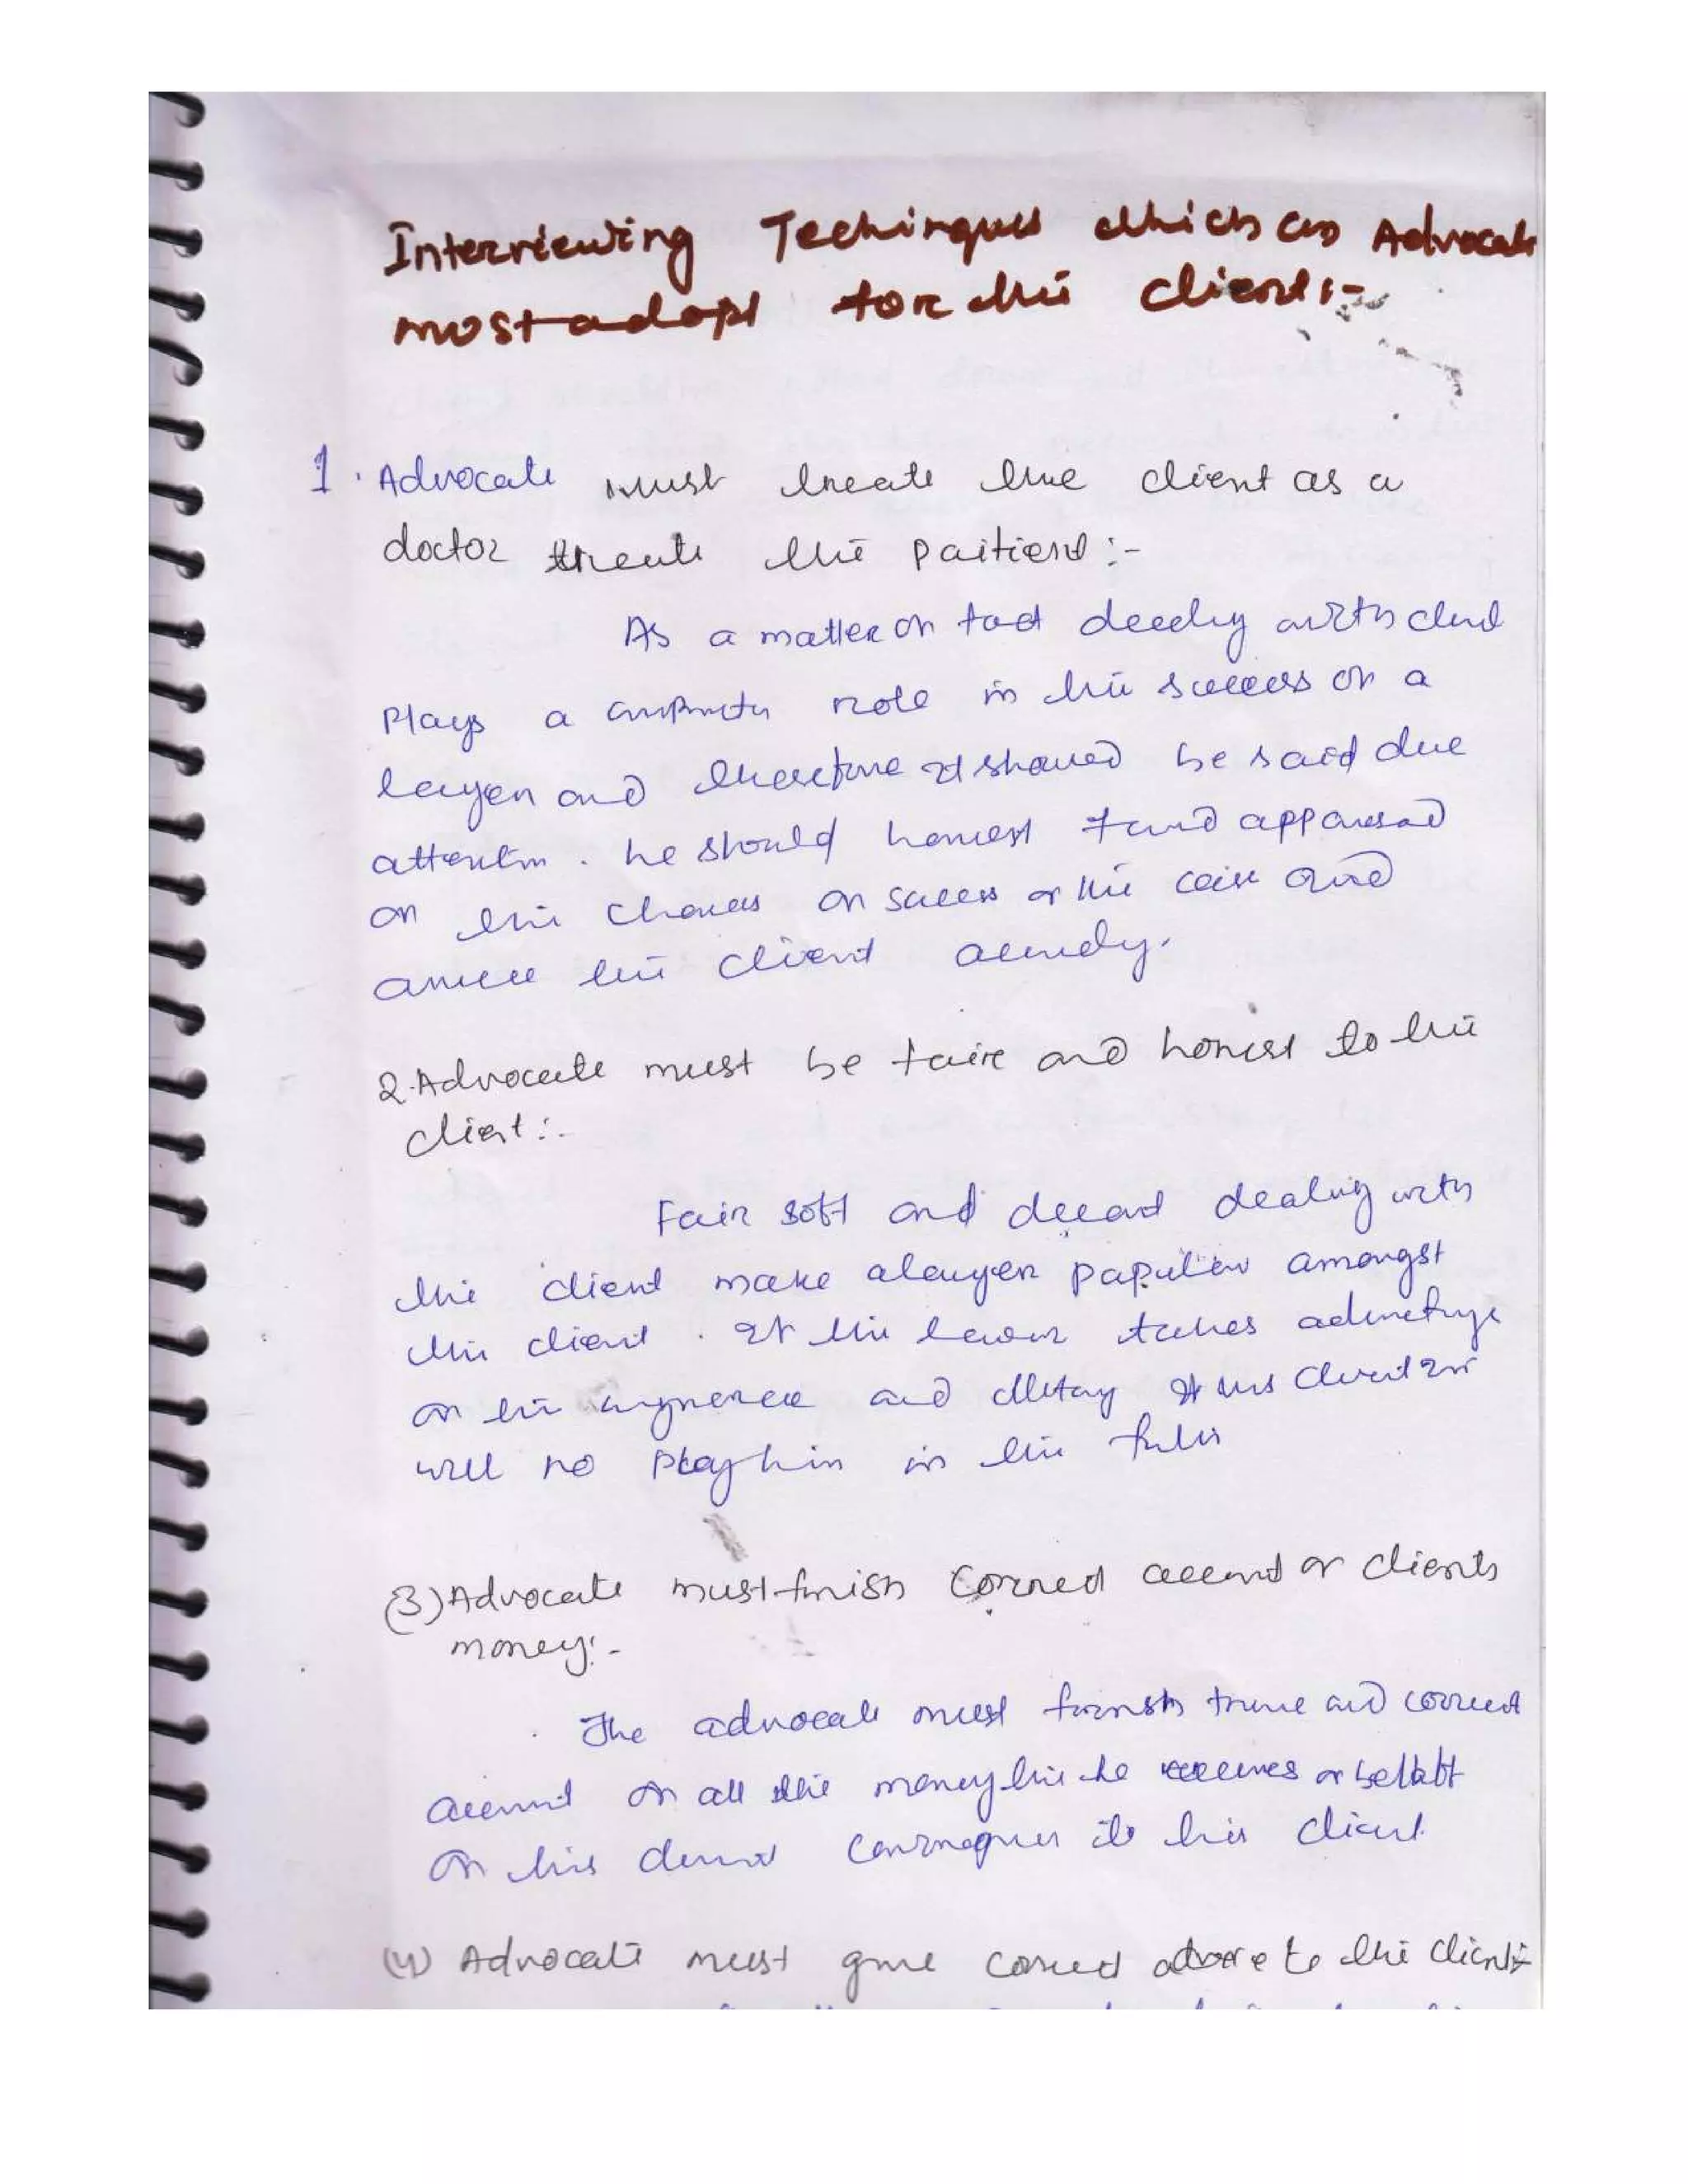 Interviewing Techinques which an Advocate
must adopt for the client:-
1. Advocate must treate the client as a
doctor treats the paitient:-
As a matter of fact deeling with client
Plays a role in the success of a
lawyer and therefore it should be said due
attention. he should honest and
on the chances of success of the case and
the client
2. Advocate must be faire and honest to the
client:-
Fair soft and decent dealing with
the client make a lawyer popular amongst
the client. If the lawyer takes advantage
of the ignorence and his client
will no Play him in the
(3) Advocate must furnish Correct account of clients
money:-
The advocate must furnish true and correct
account of all the money he receives or behalf
of his client to his client
(4) Advocate must give correct advice to the client:-